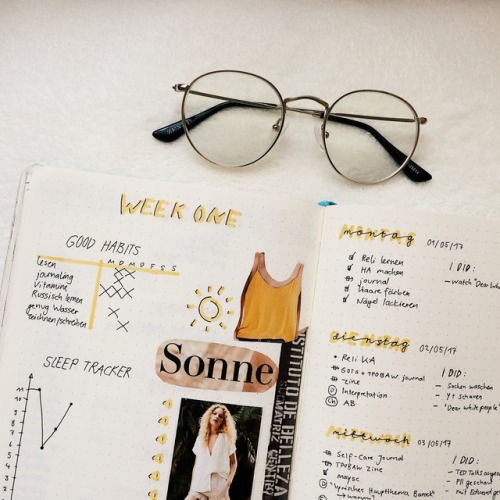 WEEK ONE
GOOD HABITS
M D M D F S S
lesen
journaling
Vitamine
Russisch lernen
genug Wasser
zeichnen/schreiben
SLEEP TRACKER
11
10
9
8
7
6
5
4
3
2
Sonne
INSTITUTO DE BELLEZA
CENTRO
montag 01/05/17
Reli lernen
HA machen
journal
Haare färben
Nägel lackieren
I DID:
- watch "Dear White
dienstag 02/05/17
Reli KA
GOTG + TPOBAW journal
Zine
Interpretation
AB
I DID:
- Socken waschen
- YT schauen
- "Dear white people"
mittwoch 03/05/17
Self-Care Journal
TPOBAW Zine
mayse
"lyrisches Hauptthema Barock"
→ warum
I DID:
- TED Talks
- Pll geschaut
- mit